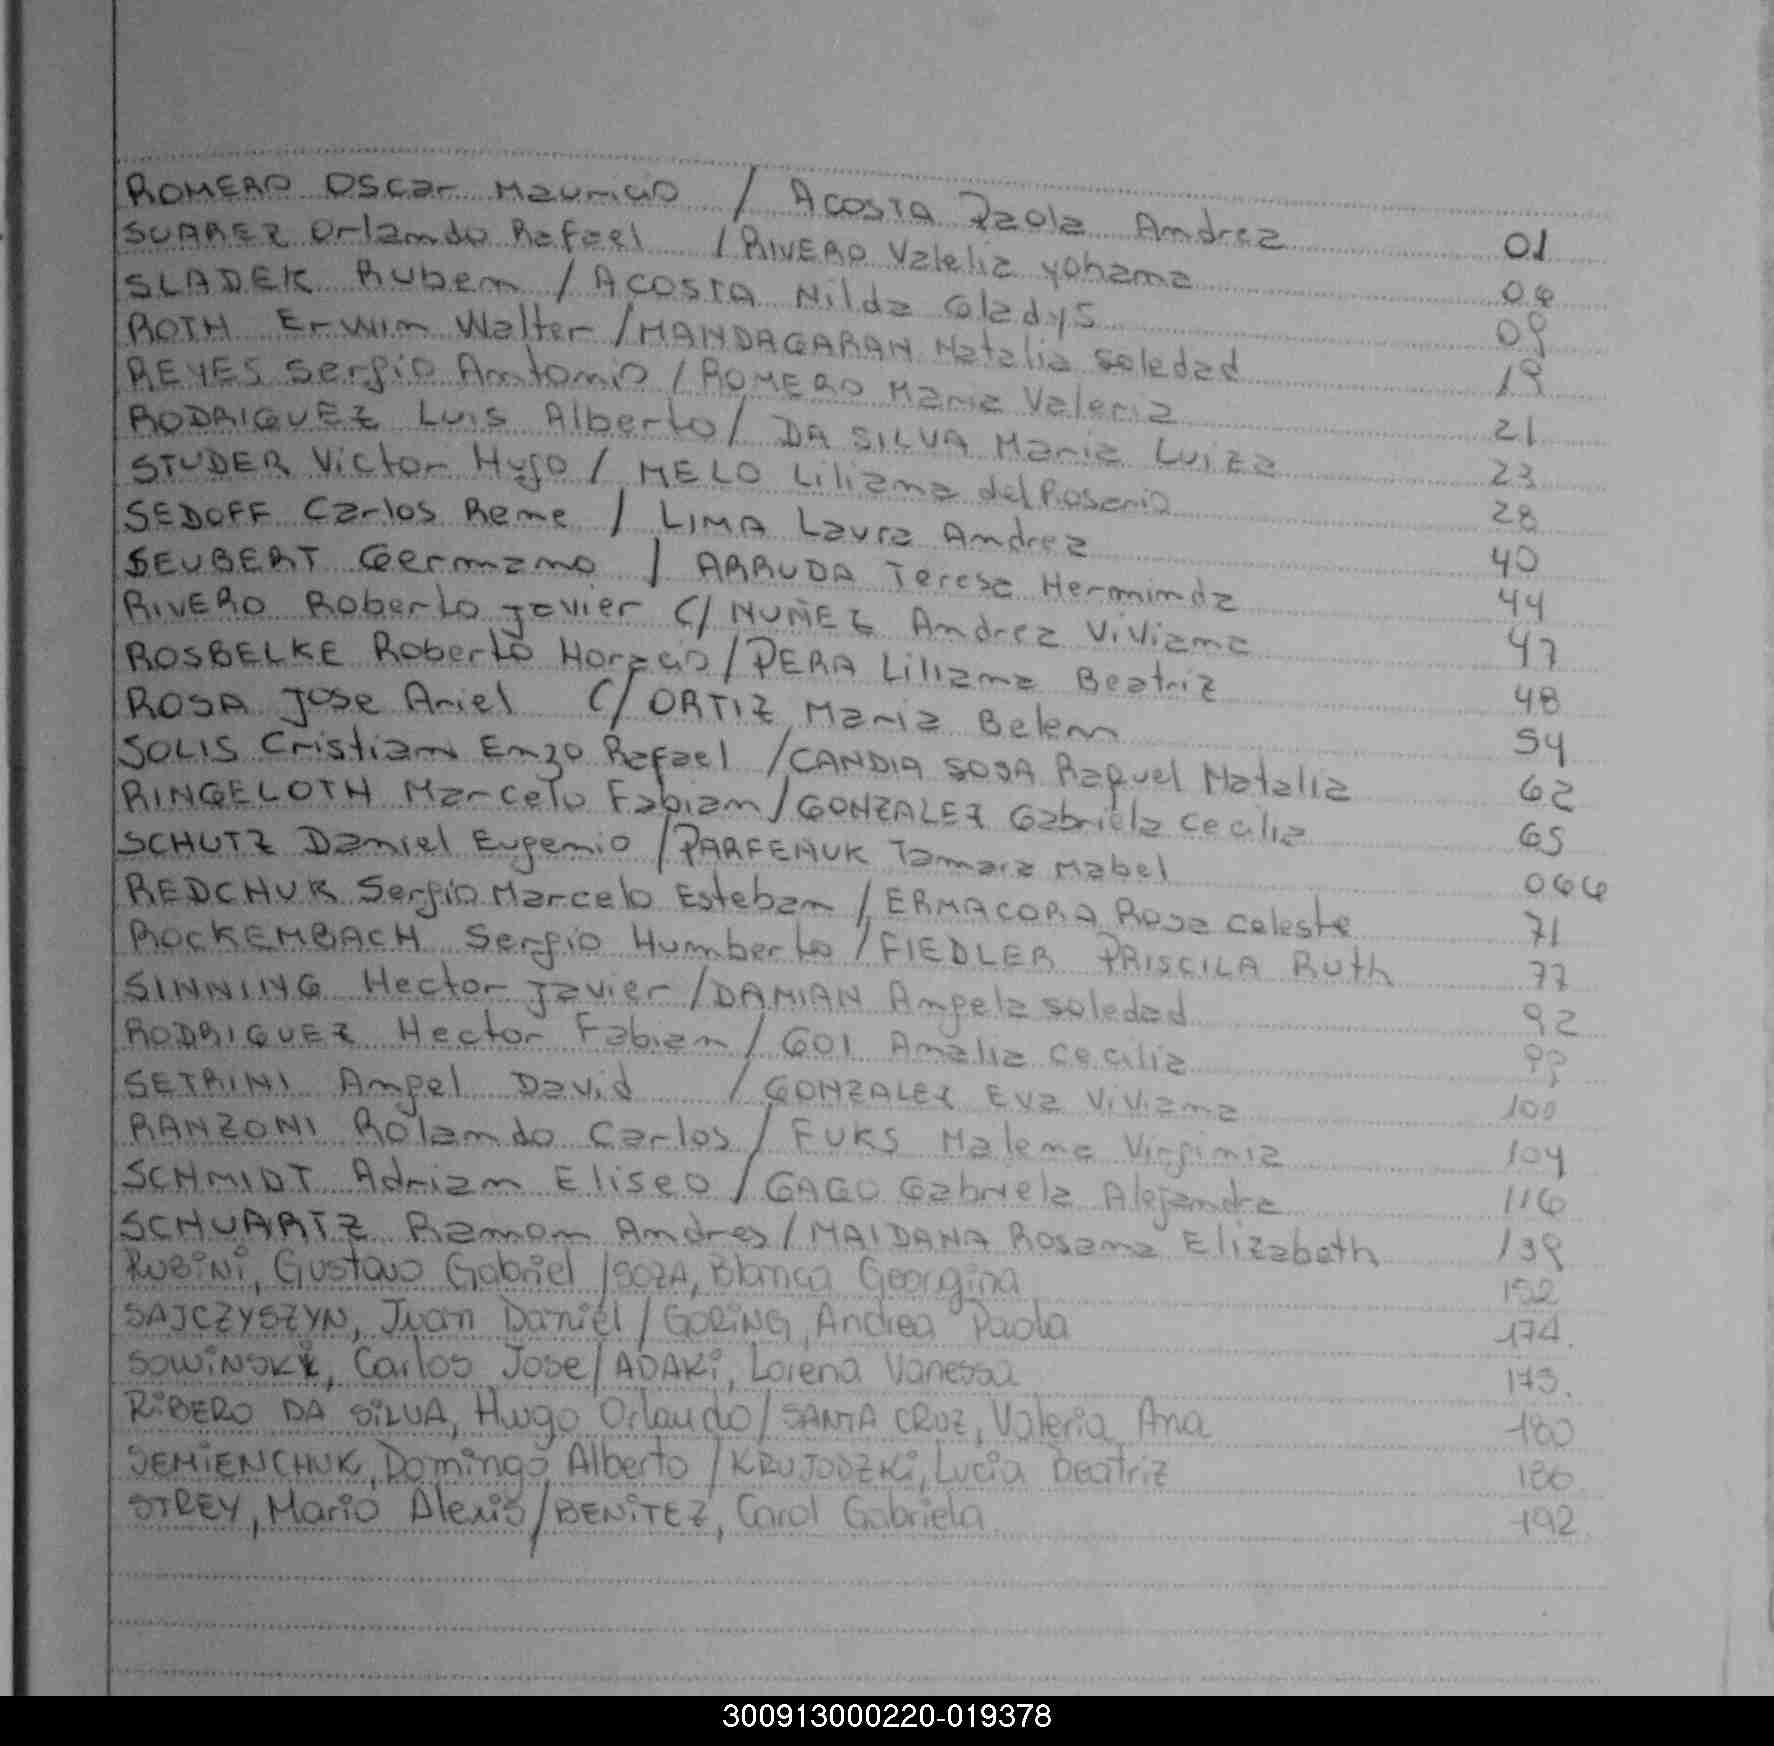 ROMERO Oscar Mauricio / ACOSTA Paola Andrea 01
SUAREZ Orlando Rafael / RIVERO Valelia Yohana 06
SLADEK Ruben / ACOSTA Nilda Gladys 09
ROTH Erwin Walter / MANDAGARAN Natalia Soledad 19
REYES Sergio Antonio / ROMERO Maria Valeria 21
RODRIGUEZ Luis Alberto / DA SILVA Maria Luiza 23
STUDER Victor Hugo / MELO Liliana del Rosario 28
SEDOFF Carlos Rene / LIMA Laura Andrea 40
SEUBERT Germano / ARRUDA Teresa Herminda 44
RIVERO Roberto Javier C/ NUÑEZ Andrea Viviana 47
ROSBELKE Roberto Horacio / PERA Liliana Beatriz 48
ROSA Jose Ariel C/ ORTIZ Maria Belen 54
SOLIS Cristian Enzo Rafael / CANDIA SOSA Raquel Natalia 62
RINGELOTH Marcelo Fabian / GONZALEZ Gabriela Cecilia 65
SCHUTZ Daniel Eugenio / PARFENUK Tamara Mabel 066
REDCHUK Sergio Marcelo Esteban / ERMACORA Rosa Celeste 71
ROCKEMBACH Sergio Humberto / FIEDLER PRISCILA Ruth 77
SINNING Hector Javier / DAMIAN Angela Soledad 92
RODRIGUEZ Hector Fabian / GOI Analia Cecilia 99
SETRINI Angel David / GONZALEZ Eva Viviana 100
RANZONI Rolando Carlos / FUKS Malena Virginia 104
SCHMIDT Adrian Eliseo / GAGO Gabriela Alejandra 116
SCHUARTZ Ramon Andres / MAIDANA Rosana Elizabeth 139
RUBINI, Gustavo Gabriel / SOZA, Blanca Georgina 152
SAJCZYSZYN, Juan Daniel / GORING, Andrea Paola 174.
SOWINSKI, Carlos Jose / ADAKI, Lorena Vanessa 175.
RIBERO DA SILVA, Hugo Orlando / SANTA CRUZ, Valeria Ana 180
SEMIENCHUK, Domingo Alberto / KRUJODZKI, Lucia Beatriz 186
STREY, Mario Alexis / BENITEZ, Carol Gabriela 192
300913000220-019378